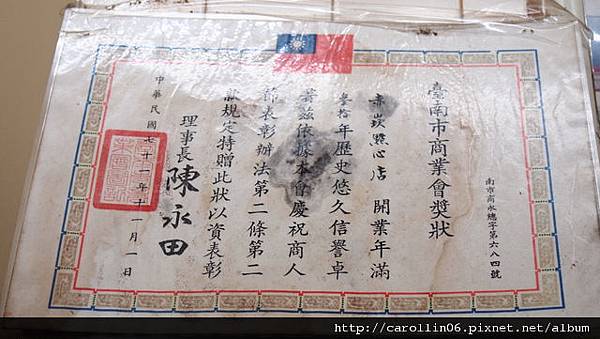 臺南市商業會獎狀
南市商永總字第六八四號
赤崁點心店 開業年滿
參拾年歷史悠久信譽卓
著茲依據本會慶祝商人
節表彰辦法第二條第二
款規定特贈此狀以資表彰
理事長 陳永田
中華民國七十一年十一月一日
http://carollin06.pixnet.net/album